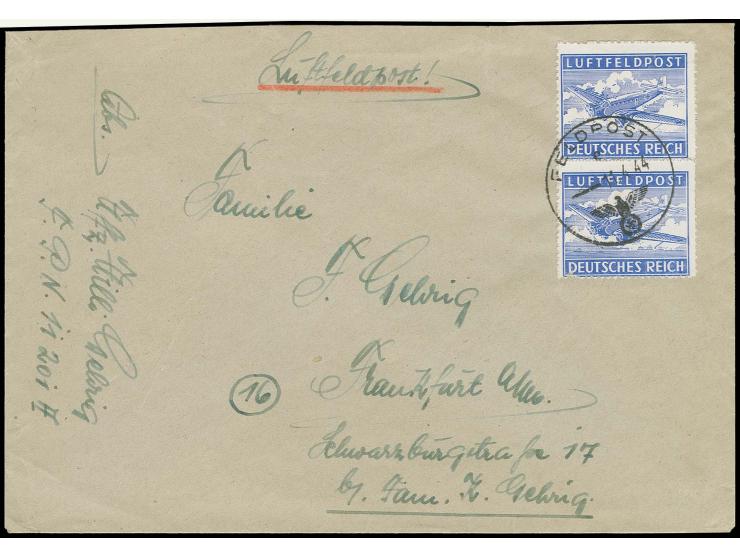 Luftfeldpost!
LUFTFELDPOST
DEUTSCHES REICH
FELDPOST
4.44
LUFTFELDPOST
DEUTSCHES REICH
Familie
F. Gehrig
16
Frankfurt a/m.
Schwarzburgstraße 17
b. Fam. K. Gehrig.
Abs.
Uffz. Willi Gehrig
F.P.N. 11 201 F